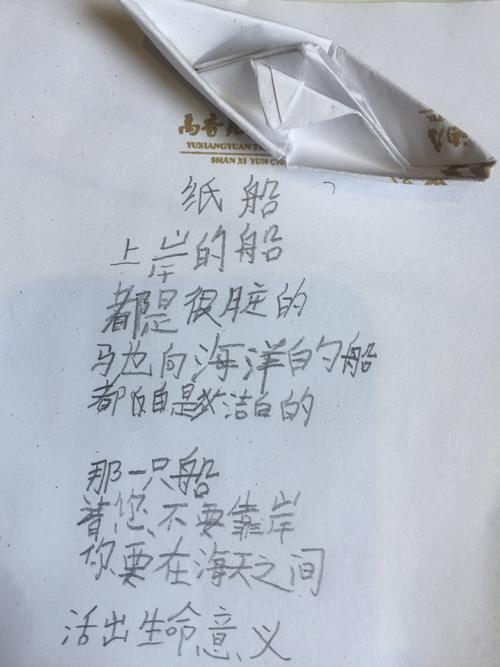 禹香
YUXIANGYUAN
SHAN XI YUN CH
纸船
上岸的船
都是很脏的
驰向海洋的船
都是洁白的
那一只船
您不要靠岸
你要在海天之间
活出生命意义